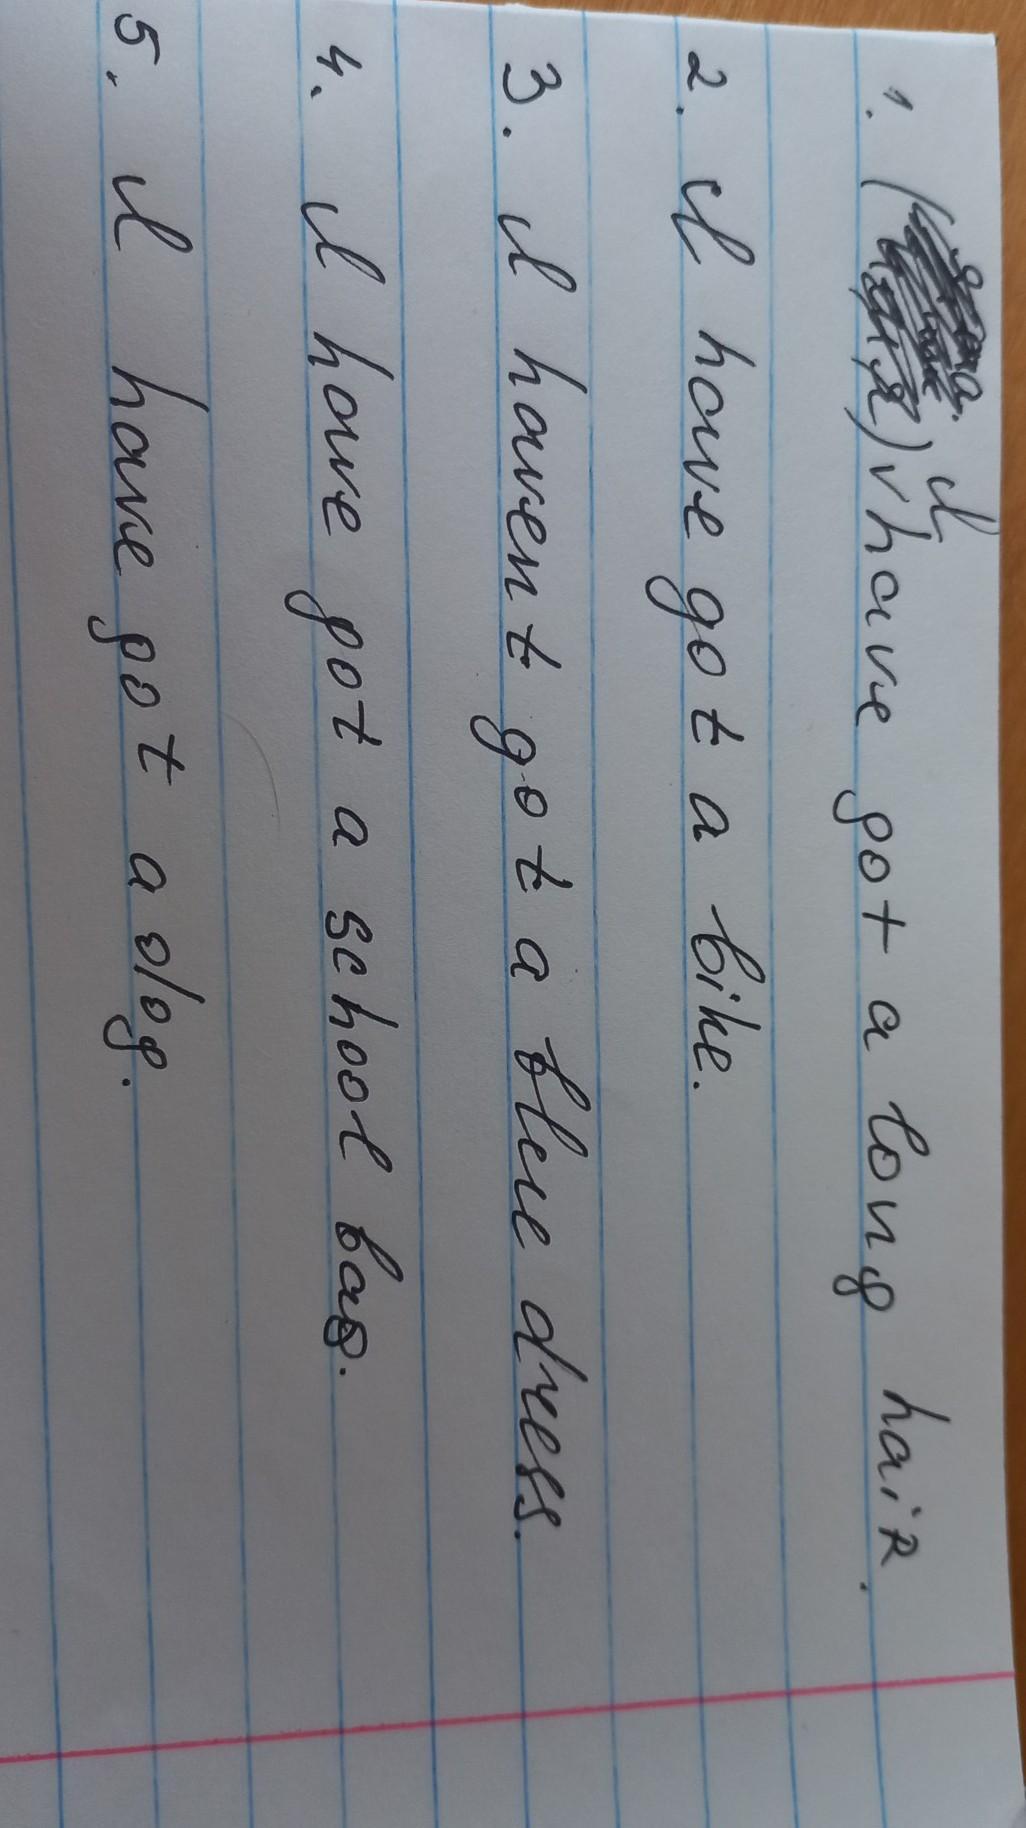 1. I have got a long hair.
2. I have got a bike.
3. I havent got a blue dress.
4. I have got a school bag.
5. I have got a dog.